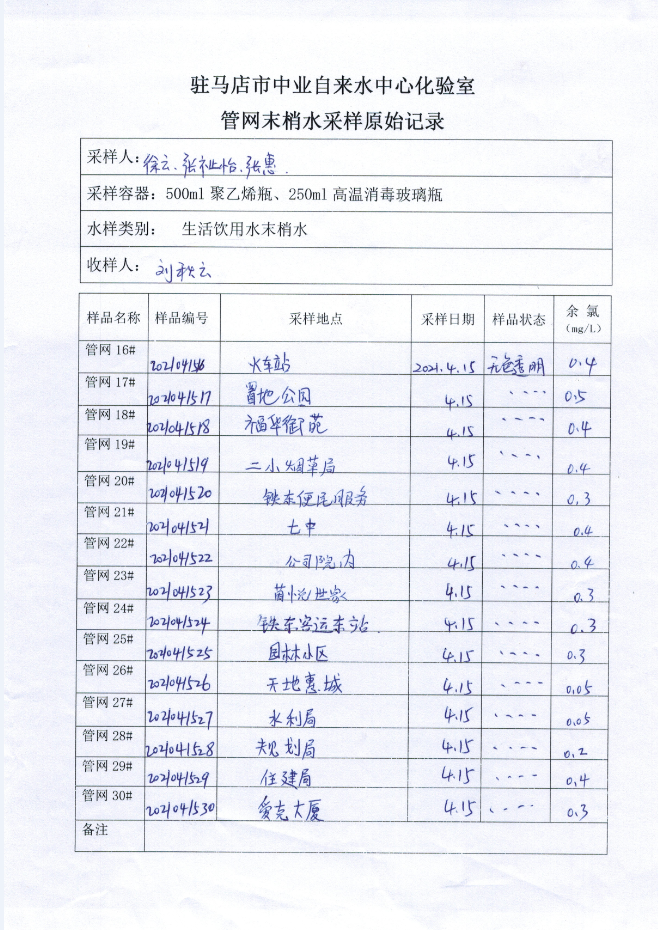 驻马店市中业自来水中心化验室
管网末梢水采样原始记录
采样人：徐云、张祉怡、张惠.
采样容器：500ml 聚乙烯瓶、250ml 高温消毒玻璃瓶
水样类别： 生活饮用水末梢水
收样人： 刘秋云
样品名称 样品编号 采样地点 采样日期 样品状态 余 氯 (mg/L)
管网 16# 火车站 2021.4.15 无色透明 0.4
管网 17# 2021041517 置地公园 4.15 ---- 0.5
管网 18# 2021041518 福华御苑 4.15 ---- 0.4
管网 19# 2021041519 二小烟草局 4.15 ---- 0.4
管网 20# 2021041520 铁东便民服务 4.15 ---- 0.3
管网 21# 2021041521 七中 4.15 ---- 0.4
管网 22# 2021041522 公司院内 4.15 ---- 0.4
管网 23# 2021041523 世家 4.15 ---- 0.3
管网 24# 2021041524 铁东客运东站. 4.15 ---- 0.3
管网 25# 2021041525 园林小区 4.15 ---- 0.3
管网 26# 2021041526 天地惠城 4.15 ---- 0.05
管网 27# 2021041527 水利局 4.15 ---- 0.05
管网 28# 2021041528 规划局 4.15 ---- 0.2
管网 29# 2021041529 住建局 4.15 ---- 0.4
管网 30# 2021041530 爱克大厦 4.15 ---- 0.3
备注